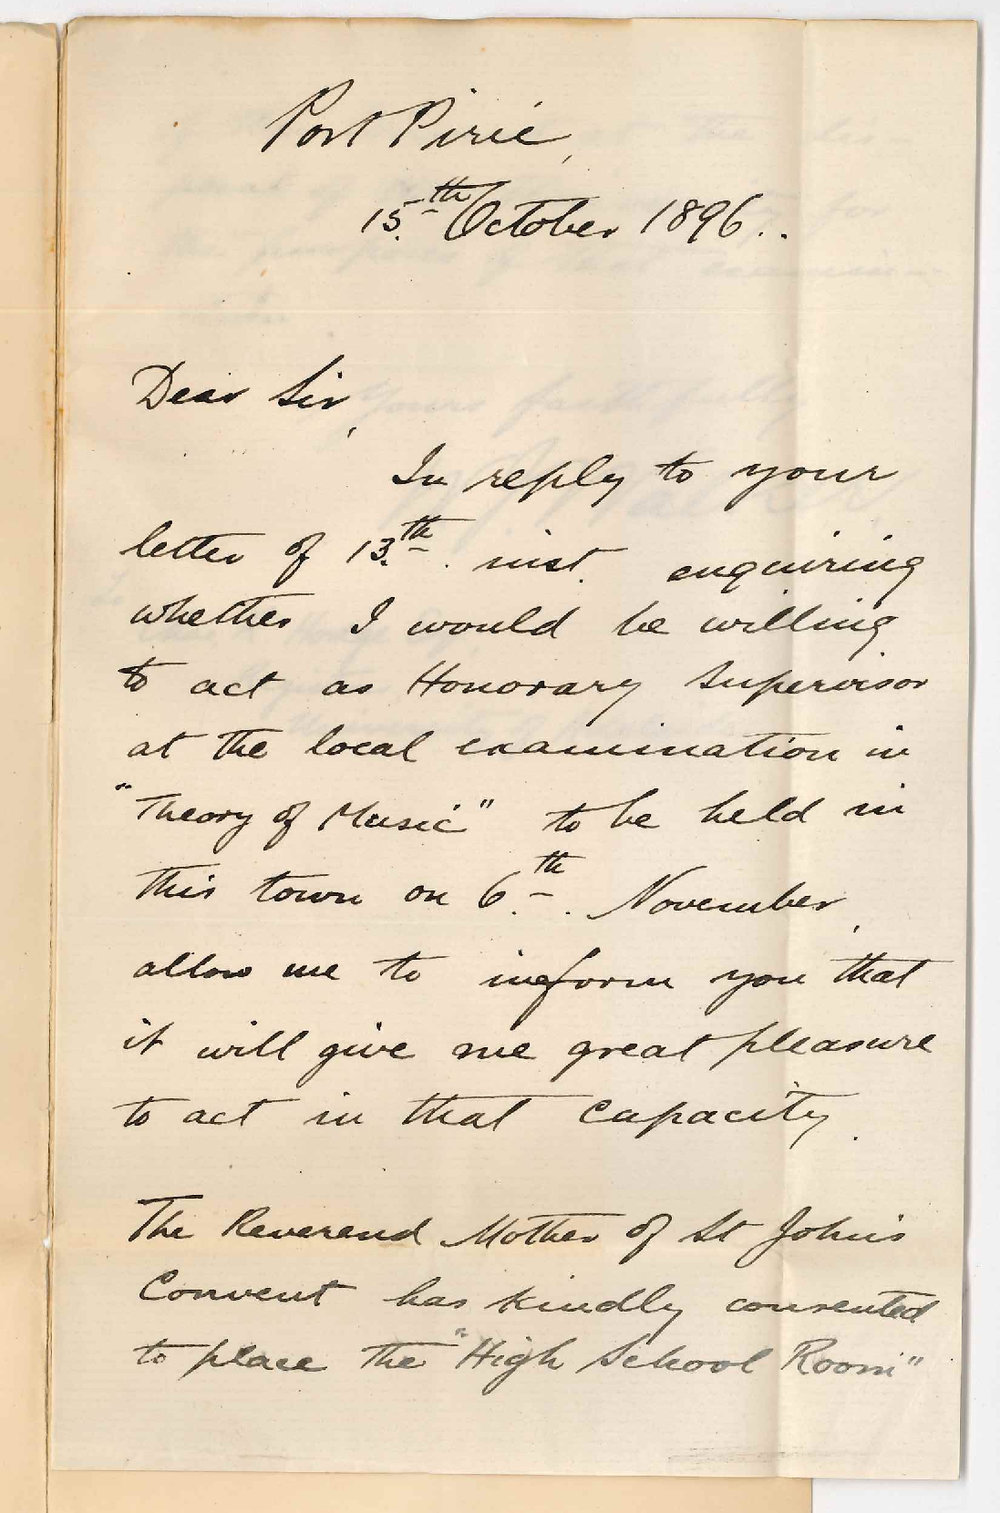 Port Pirie,
15th October 1896..
Dear Sir,
In reply to your
letter of 13th. inst. enquiring
whether I would be willing
to act as Honorary Supervisor
at the local examination in
"Theory of Music" to be held in
this town on 6th. November,
allow me to inform you that
it will give me great pleasure
to act in that capacity.
The Reverend Mother of St John's
Convent has kindly consented
to place the "High School Room"